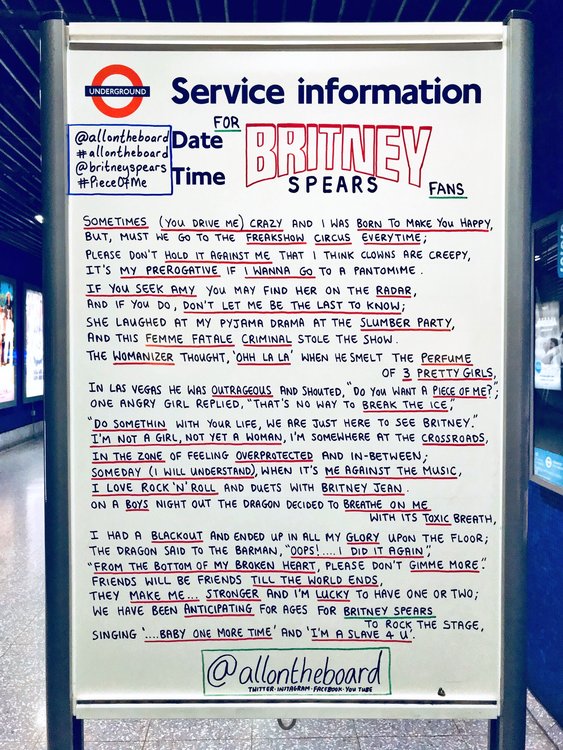 UNDERGROUND
Service information
@allontheboard
#allontheboard
@britneyspears
#PieceOfMe
Date
Time
FOR
BRITNEY
SPEARS
FANS
SOMETIMES (YOU DRIVE ME) CRAZY AND I WAS BORN TO MAKE YOU HAPPY,
BUT, MUST WE GO TO THE FREAKSHOW CIRCUS EVERYTIME;
PLEASE DON'T HOLD IT AGAINST ME THAT I THINK CLOWNS ARE CREEPY,
IT'S MY PREROGATIVE IF I WANNA GO TO A PANTOMIME.
IF YOU SEEK AMY YOU MAY FIND HER ON THE RADAR,
AND IF YOU DO, DON'T LET ME BE THE LAST TO KNOW;
SHE LAUGHED AT MY PYJAMA DRAMA AT THE SLUMBER PARTY,
AND THIS FEMME FATALE CRIMINAL STOLE THE SHOW.
THE WOMANIZER THOUGHT, 'OHH LA LA' WHEN HE SMELT THE PERFUME
OF 3 PRETTY GIRLS,
IN LAS VEGAS HE WAS OUTRAGEOUS AND SHOUTED, "DO YOU WANT A PIECE OF ME?";
ONE ANGRY GIRL REPLIED, "THAT'S NO WAY TO BREAK THE ICE",
"DO SOMETHIN WITH YOUR LIFE, WE ARE JUST HERE TO SEE BRITNEY."
I'M NOT A GIRL, NOT YET A WOMAN, I'M SOMEWHERE AT THE CROSSROADS,
IN THE ZONE OF FEELING OVERPROTECTED AND IN-BETWEEN;
SOMEDAY (I WILL UNDERSTAND), WHEN IT'S ME AGAINST THE MUSIC,
I LOVE ROCK 'N' ROLL AND DUETS WITH BRITNEY JEAN.
ON A BOYS NIGHT OUT THE DRAGON DECIDED TO BREATHE ON ME
WITH ITS TOXIC BREATH,
I HAD A BLACKOUT AND ENDED UP IN ALL MY GLORY UPON THE FLOOR;
THE DRAGON SAID TO THE BARMAN, "OOPS!....I DID IT AGAIN",
"FROM THE BOTTOM OF MY BROKEN HEART, PLEASE DON'T GIMME MORE".
FRIENDS WILL BE FRIENDS TILL THE WORLD ENDS,
THEY MAKE ME... STRONGER AND I'M LUCKY TO HAVE ONE OR TWO;
WE HAVE BEEN ANTICIPATING FOR AGES FOR BRITNEY SPEARS
TO ROCK THE STAGE,
SINGING '....BABY ONE MORE TIME' AND 'I'M A SLAVE 4 U'.
@allontheboard
TWITTER·INSTAGRAM·FACEBOOK·YOU TUBE